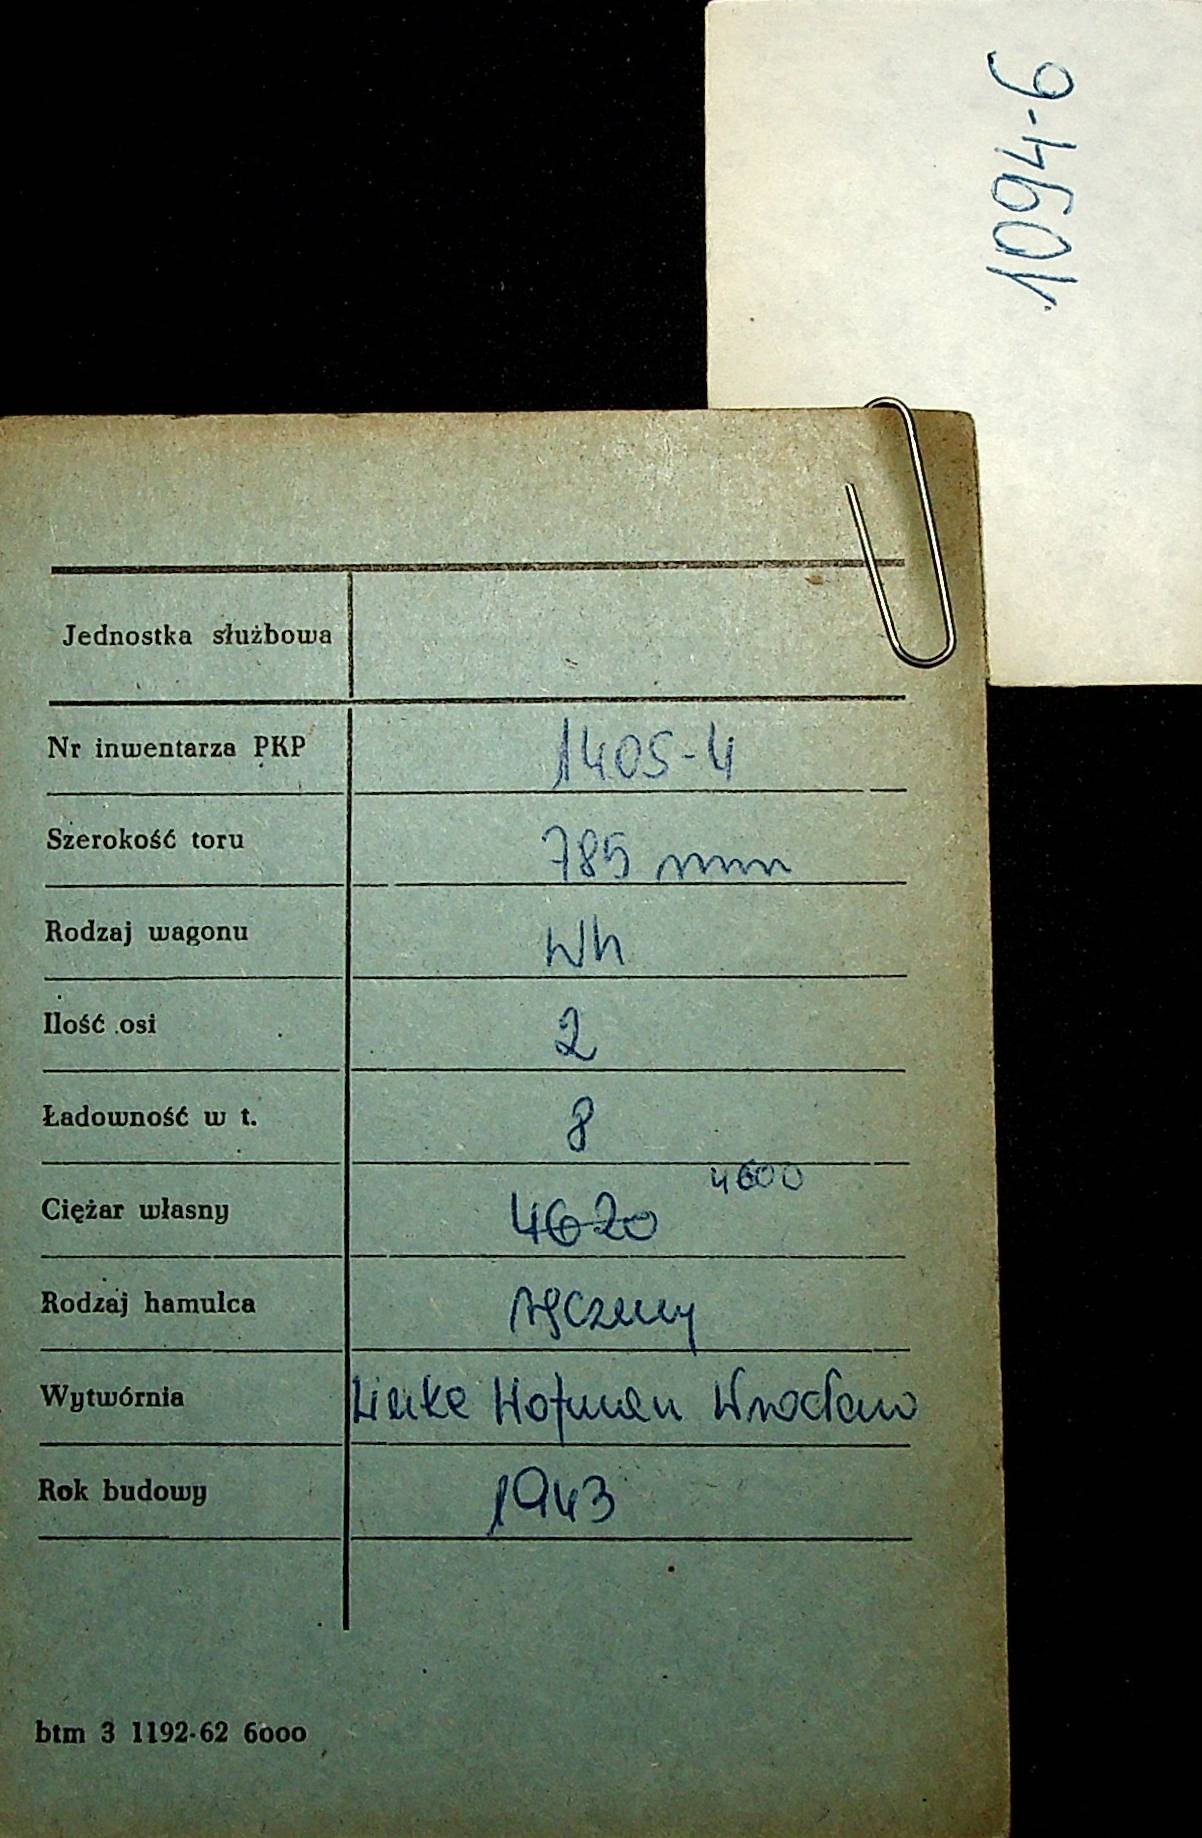 1094-6
Jednostka służbowa
Nr inwentarza PKP 1405-4
Szerokość toru 785 mm
Rodzaj wagonu Wh
Ilość osi 2
Ładowność w t. 8
4600
Ciężar własny 4620
Rodzaj hamulca ręczny
Wytwórnia Linke Hofman Wrocław
Rok budowy 1943
btm 3 1192-62 6000